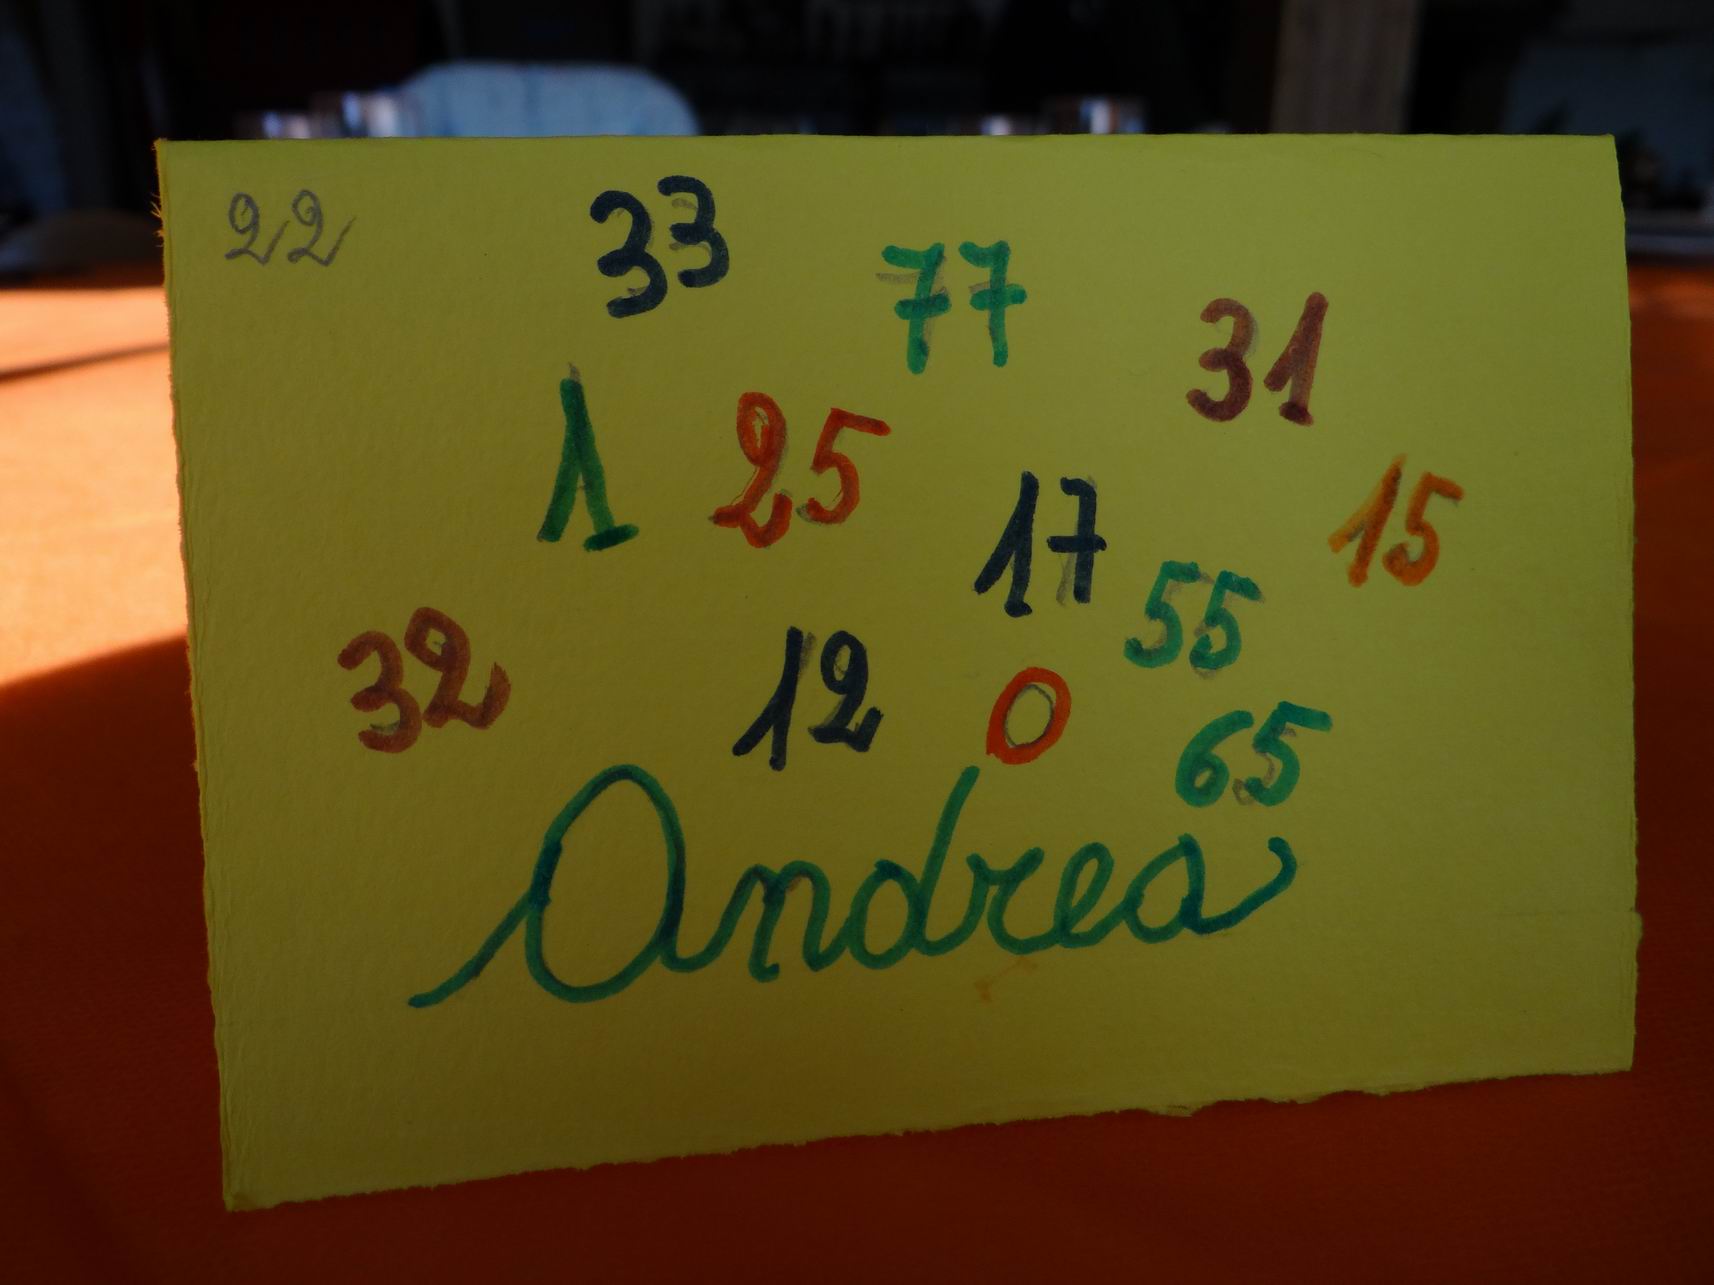 22
33
77
31
1
25
17
15
55
32
12
0
65
Andrea